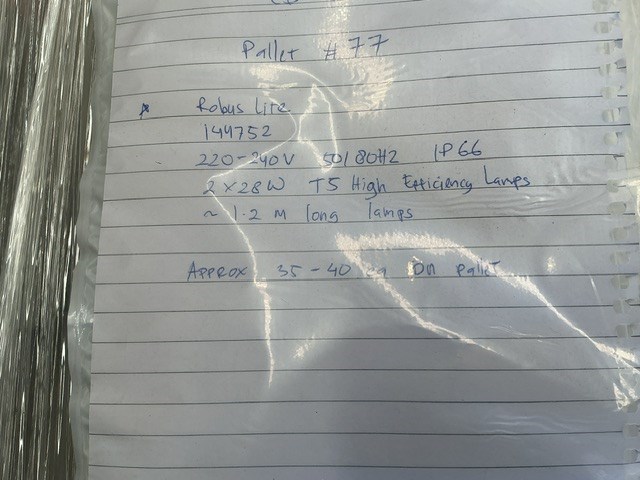 Pallet # 77
* Robus Lite
144752
220-240V 50/80HZ IP66
2x28W T5 High Efficiency Lamps
~ 1.2 M long lamps
APPROX 35-40 On pallet